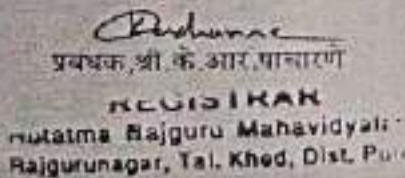 प्रबंधक,श्री.के.आर.पाचारणे
REGISTRAR
Hutatma Rajguru Mahavidyal
Rajgurunagar, Tal. Khed, Dist. Pu